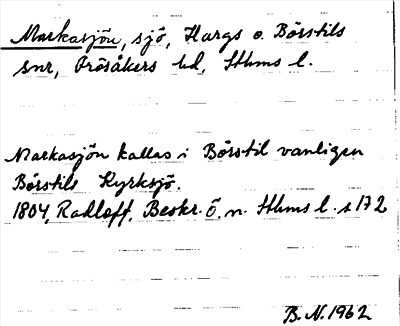 Markasjön, sjö, Hargs o. Börstils
snr, Frösåkers hd, Sthms l.
Markasjön kallas i Börstil vanligen
Börstils Kyrksjö.
1804, Radloff, Beskr. ö. n. Sthms l. s 172
B.N. 1962